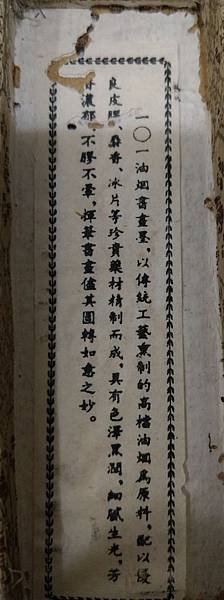 一〇一油烟書畫墨，以傳統工藝熏制的高檔油烟爲原料，配以優
良皮膠、麝香、冰片等珍貴藥材精制而成，具有色澤黑潤，細膩生光，芳
香濃郁，不膠不暈，揮筆書畫儘其圓轉如意之妙。